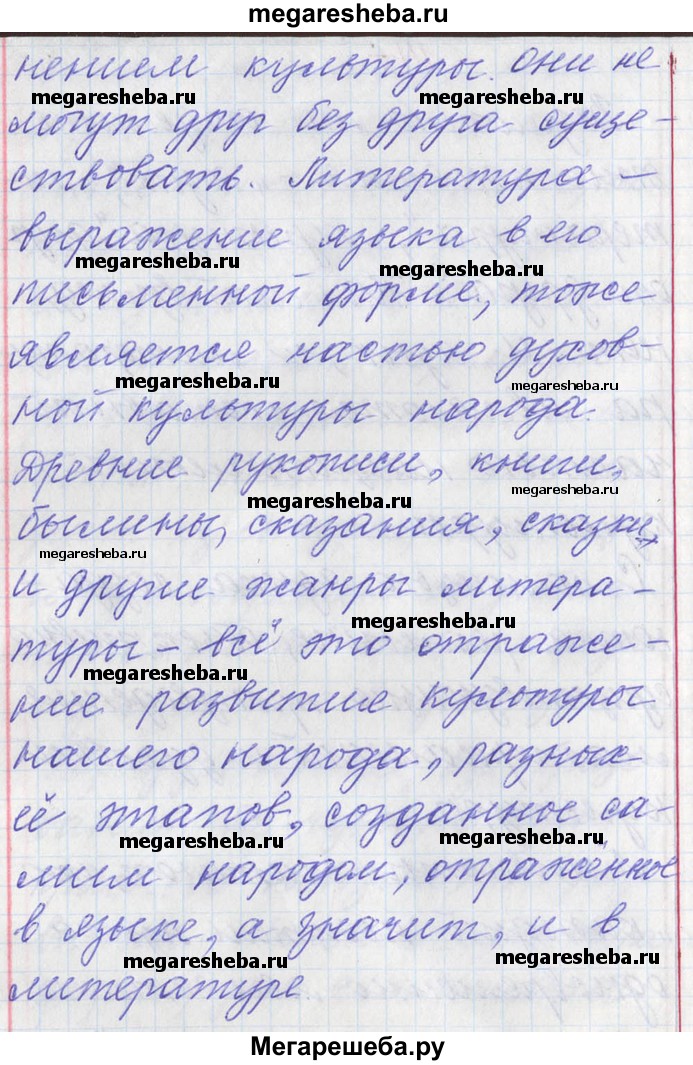 megaresheba.ru
нением культуры. они не
megaresheba.ru megaresheba.ru
могут друг без друга суще-
ствовать. Литература –
выражение языка в его
megaresheba.ru megaresheba.ru
письменной форме, тоже
является частью духов-
megaresheba.ru megaresheba.ru
ной культуры народа.
Древние рукописи, книги,
megaresheba.ru megaresheba.ru
былины, сказания, сказки,
megaresheba.ru
и другие жанры литера-
megaresheba.ru
туры – всё это отраже-
megaresheba.ru
ние развитие культуры
megaresheba.ru
нашего народа, разных
её этапов, созданное са-
megaresheba.ru megaresheba.ru
мим народом, отражённое
в языке, а значит, и в
megaresheba.ru megaresheba.ru
литературе
Мегарешеба.ру